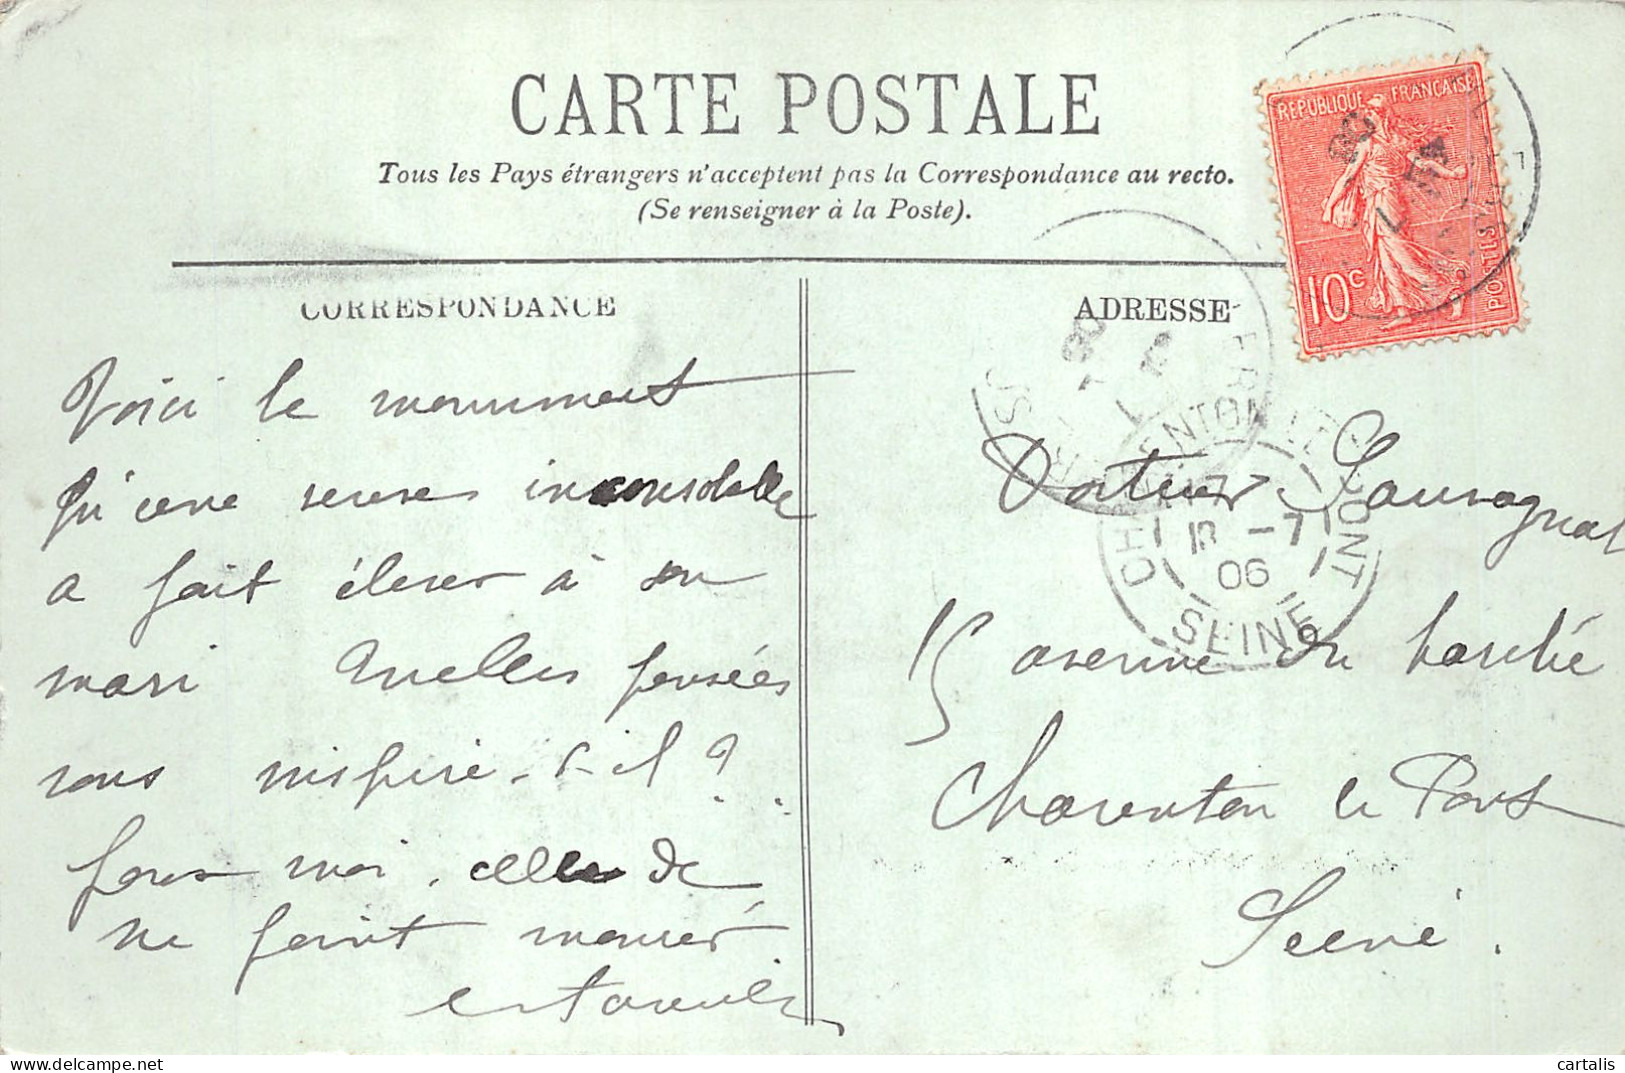 CARTE POSTALE
Tous les Pays étrangers n'acceptent pas la Correspondance au recto.
(Se renseigner à la Poste).
REPUBLIQUE FRANÇAISE
10c
POSTES
CORRESPONDANCE
Voici le monument
qu'une veuve inconsolable
a fait élever à son
mari Quelles pensées
vous inspire-t-il ?
pour moi, celle de
ne point mourir
ADRESSE
Docteur
15 avenue du
Charenton le Pont
Seine.
CHARENTON LE PONT
-7
06
SEINE
cartalis